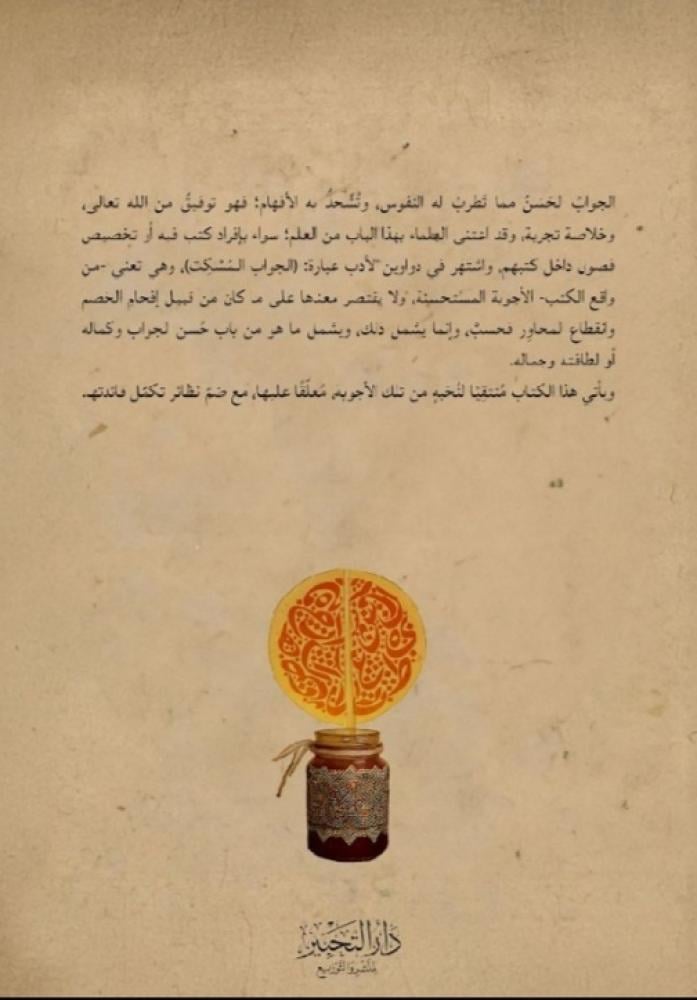 الجوابُ لحَسَنُ مما تَطربُ له النفوس، وتُشْحذُ به الأفهام؛ فهو توفيقٌ من الله تعالى،
وخلاصة تجربة، وقد اعتنى العلماء بهذا الباب من العلم؛ سواء بإفراد كتب فيه أو تخصيص
فصول داخل كتبهم، واشتهر في دواوين الأدب عبارة: (الجواب المُسْكِت)، وهي تعني -من
واقع الكتب- الأجوبة المستحسنة، ولا يقتصر معناها على ما كان من قبيل إفحام الخصم
وانقطاع لمحاوِر فحسبُ، وإنما يشمل ذلك، ويشمل ما هو من باب حُسن لجواب وكماله
أو لطافته وجماله.
ويأتي هذا الكتاب مُنتقِيًا لنُخبةٍ من تلك الأجوبة، مُعلِّقًا عليها، مع ضمّ نظائر تكمّل فائدتها.
دار التحبير
للنشر والتوزيع